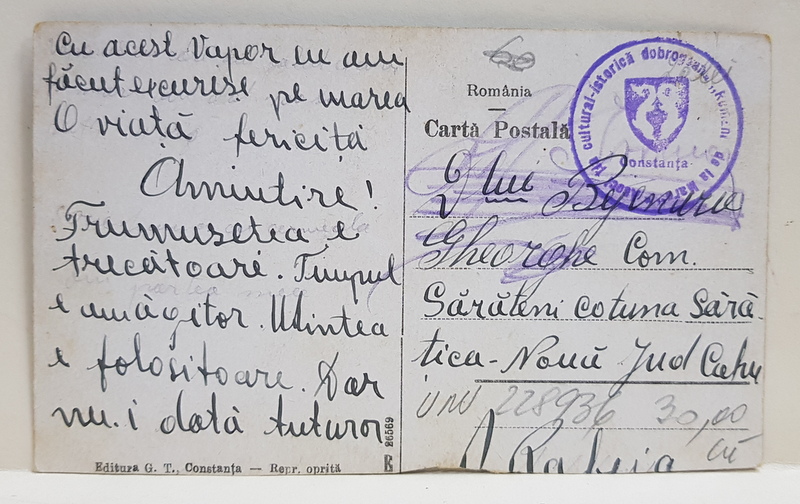 Cu acest Vapor eu am
făcut excursie pe marea
O viață fericită
Amintire!
Frumusețea e
trecătoare. Timpul
e amăgitor. Mintea
e folositoare. Dar
nu. i dată tuturor
Editura G. T., Constanța — Repr. oprită
26569
60
România
Cartă Postală
cultural-istorică dobrogeană
Constanța
D lui
Gheorghe Com.
Sărăteni cotuna Sără-
țica-Nouă Jud Cahu
UNU 228936 30,00